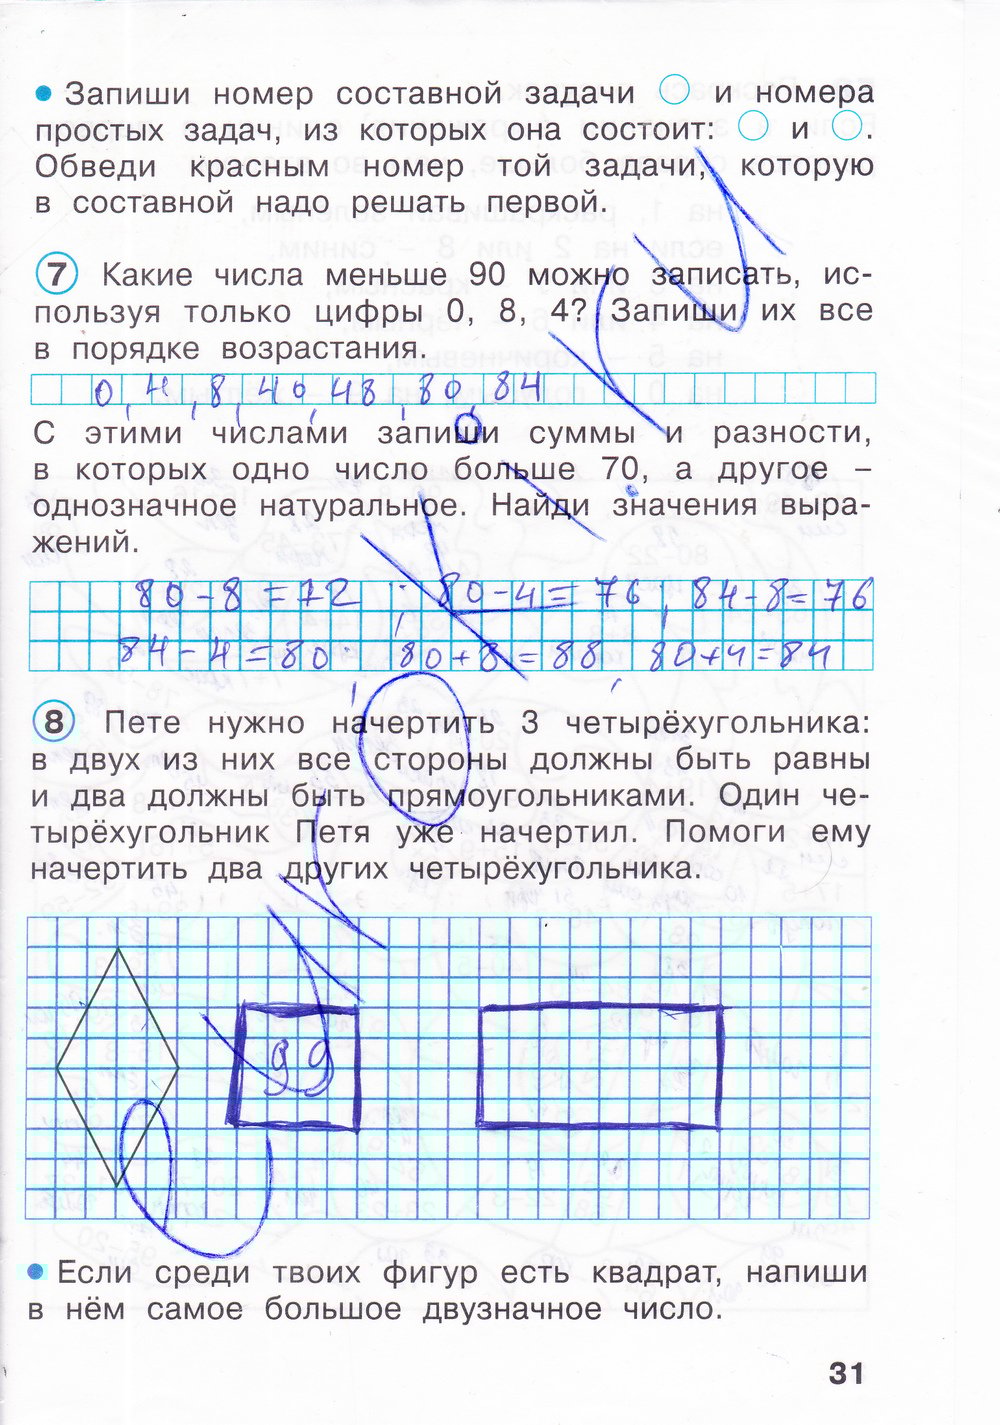 • Запиши номер составной задачи ○ и номера
простых задач, из которых она состоит: ○ и ○.
Обведи красным номер той задачи, которую
в составной надо решать первой.
7 Какие числа меньше 90 можно записать, ис-
пользуя только цифры 0, 8, 4? Запиши их все
в порядке возрастания.
0, 4, 8, 40, 48, 80, 84
С этими числами запиши суммы и разности,
в которых одно число больше 70, а другое –
однозначное натуральное. Найди значения выра-
жений.
80-8=72, 80-4=76, 84-8=76
84-4=80, 80+8=88, 80+4=84
8 Пете нужно начертить 3 четырёхугольника:
в двух из них все стороны должны быть равны
и два должны быть прямоугольниками. Один че-
тырёхугольник Петя уже начертил. Помоги ему
начертить два других четырёхугольника.
99
• Если среди твоих фигур есть квадрат, напиши
в нём самое большое двузначное число.
31